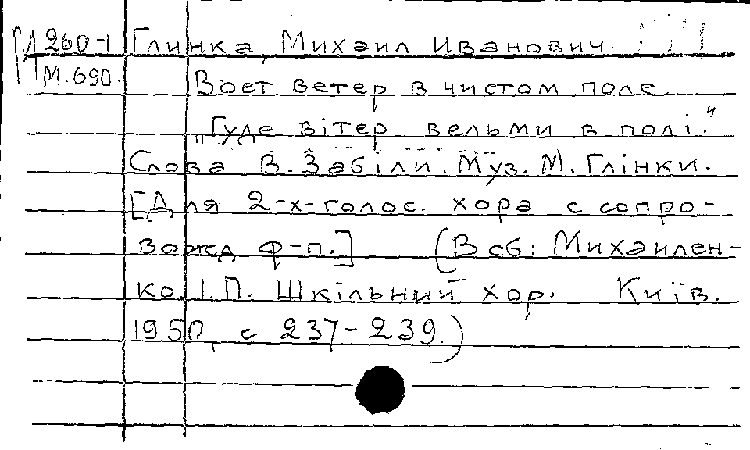 Д 260-1 Глинка, Михаил Иванович.
М.690. Воет ветер в чистом поле.
„Гуде вітер вельми в полі."
Слова В. Забіли. Муз. М. Глінки.
[Для 2-х-голос. хора с сопро-
вожд ф-п.] (В сб: Михайлен-
ко І.П. Шкільний хор. Київ.
1950, с 237-239.)